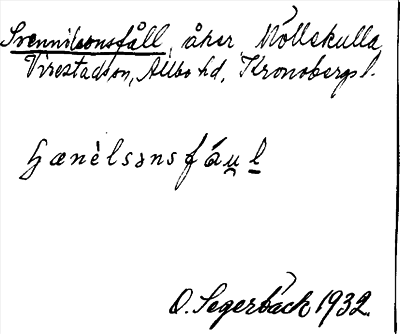 Svennilsonsfåll, åker, Möllekulla,
Virestads sn, Allbo hd, Kronobergs l.
hænèlsɔnsfáu̲l̲
O. Segerbäck 1932.